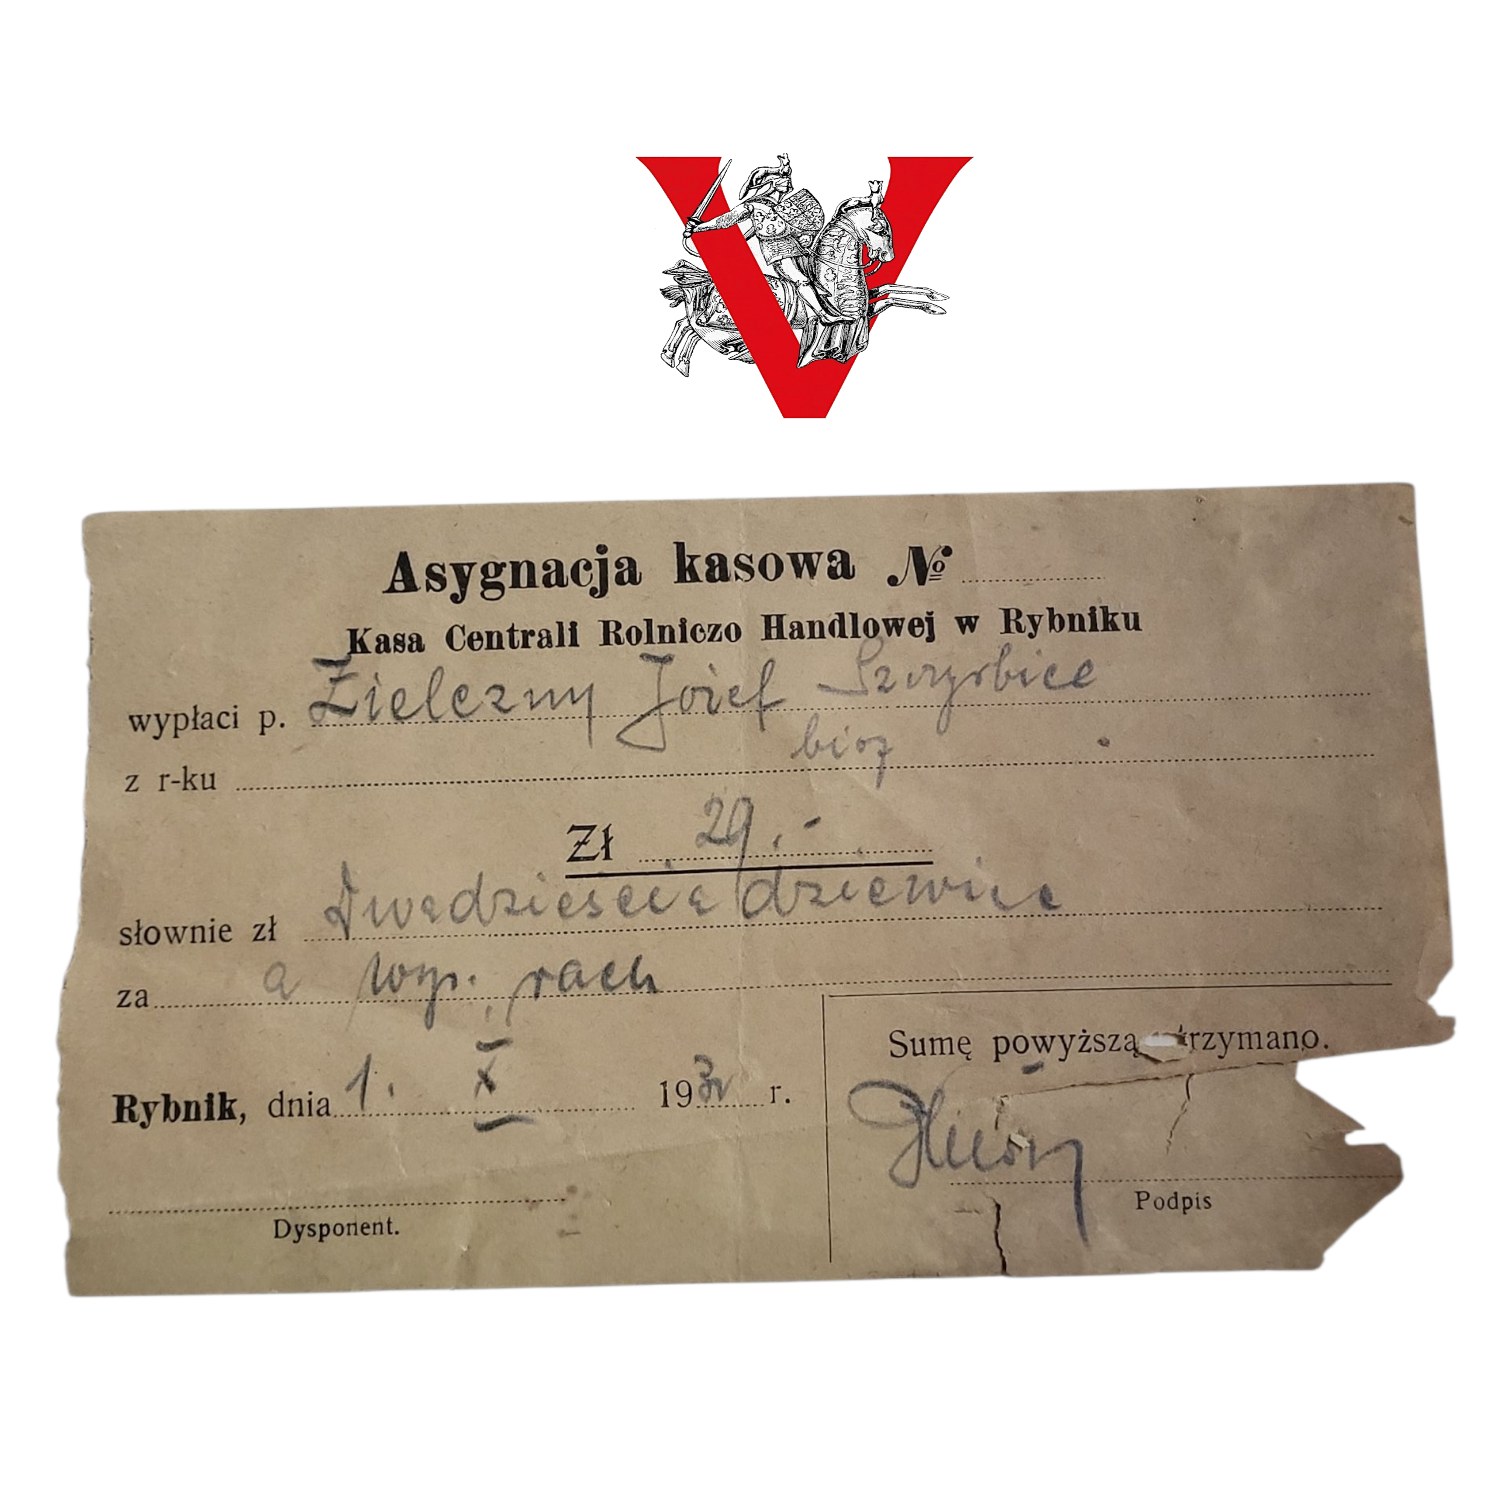 V
Asygnacja kasowa №
Kasa Centrali Rolniczo Handlowej w Rybniku
wypłaci p. Zielezny Józef Szczyrbice
z r-ku
Zł 29.-
słownie zł Dwadzieścia dziewięć
za a wyp. rach
Rybnik, dnia 1. X 193 r.
Sumę powyższą trzymano.
Podpis
Dysponent.